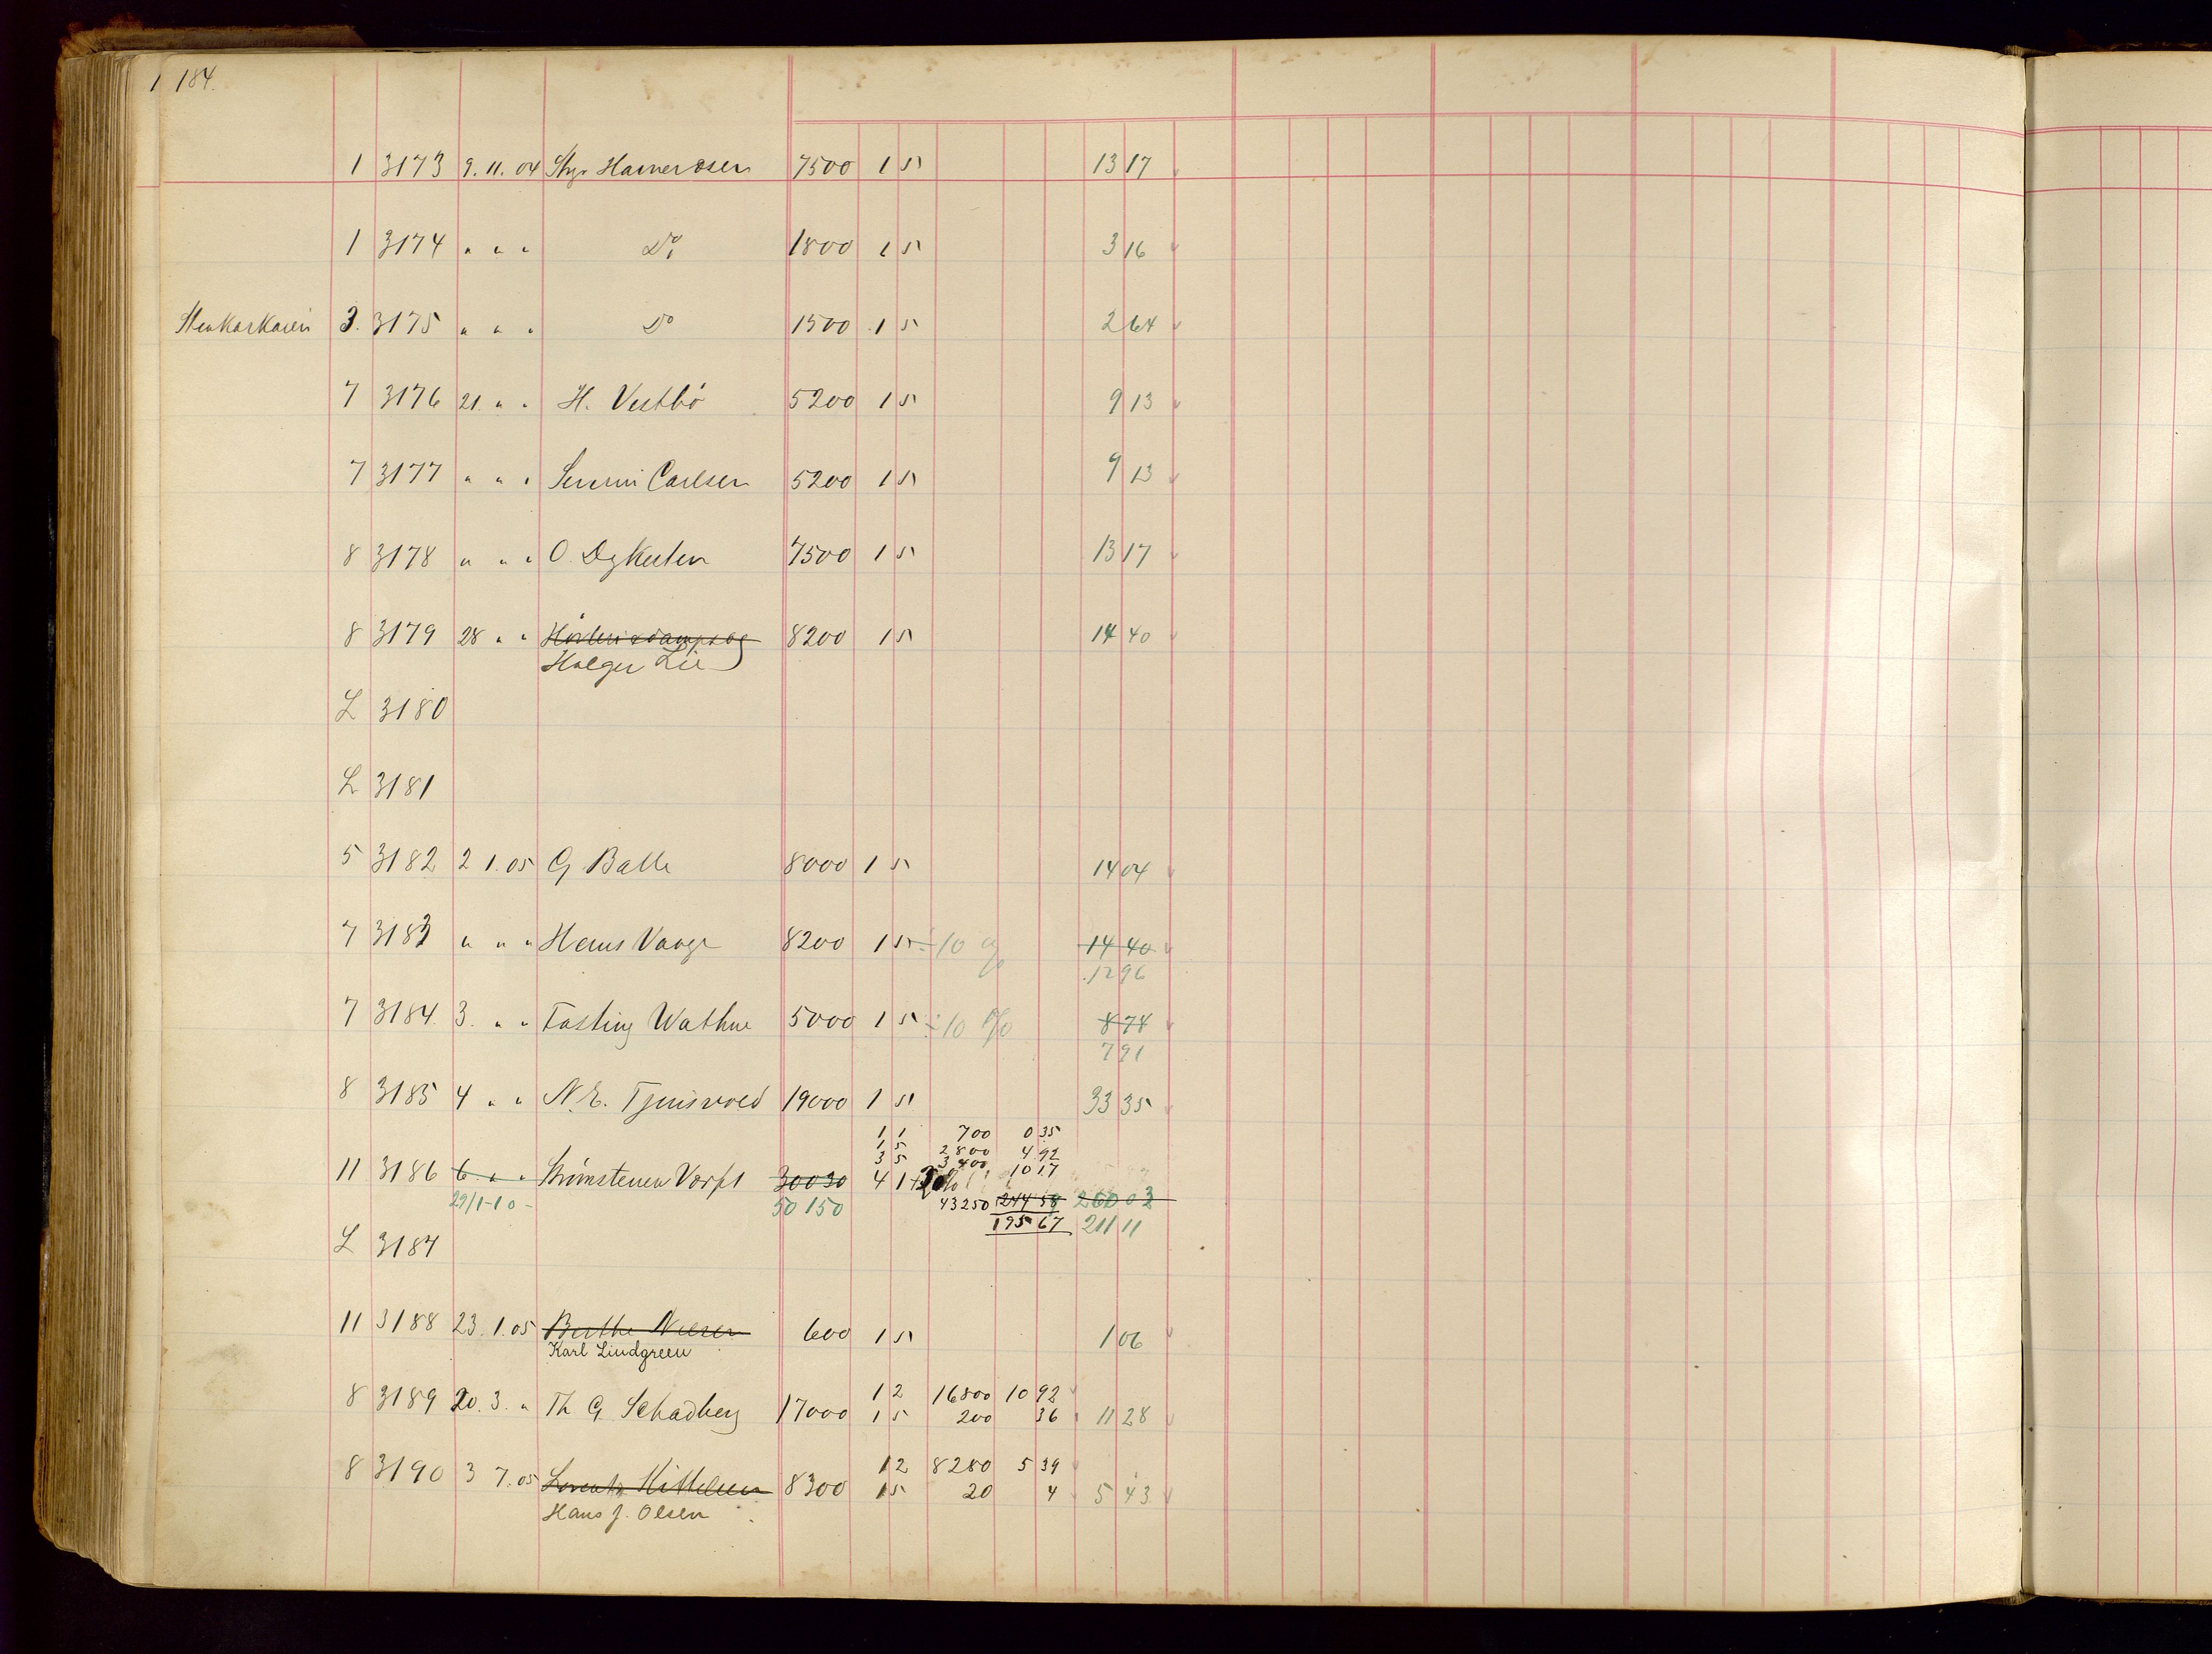 1 184.
1 3173 9. 11. 04 7500 1 5 13 17
1 3174 " " " Do 1800 1 5 3 16
3. 3175 " " " Do 1500 1 5 2 64
7 3176 21. " " H. Vestbö 5200 1 5 9 13
7 3177 " " " Severin Carlsen 5200 1 5 9 13
8 3178 " " " O. 7500 1 5 13 17
8 3179 28 " " 8200 1 5 14 40
Holger Lie
L 3180
L 3181
5 3182 2 1. 05 G Balle 8000 1 5 14 04
7 3183 " " " Hans Vaage 8200 1 5 ÷ 10 % 14 40
12 96
7 3184. 3. " " Fasting Wathne 5000 1 5 ÷ 10 % 8 78
7 91
8 3185 4 " " N. E. Tjensvold 19000 1 5 33 35
1 1 700 0 35
1 5 2800 4 92
3 5 3400 10 17
11 3186 6. " " Strömstenen Værft 30030 4 1
29/1-10- 50 150 43250 244 58 260 03
195 67 211 11
L 3187
11 3188 23. 1. 05 Berthe Nilsen 600 1 5 1 06
Karl Lindgreen
1 2 16800 10 92
8 3189 20. 3. " Th G. Schadberg 17000 1 5 200 36 11 28
1 2 8280 5 39
8 3190 3 7. 05 Lorentz Kittelsen 8300 1 5 20 4 5 43
Hans J. Olsen